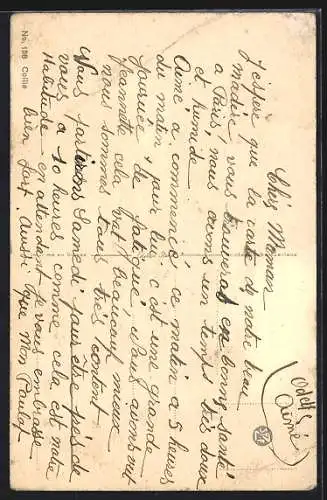 Chère Maman
J'espère que la carte de notre beau
madère, vous trouverat en bonne santé
a Paris, nous avons un temps très doux
et humide
Aimé a commencé ce matin a 5 heures
du matin pour lui c'est une grande
journée + de fatigue, nous avons vu
Jeannette cela vat beaucoup mieux
nous sommes tous très content
Nous partirons Samedi pour être près de
vous a 10 heures comme cela est notre
Habitude en attendent je vous embrasse
bien fort. Aussi que Mon Paulat
Odette
Aimé
No. 198 Collie